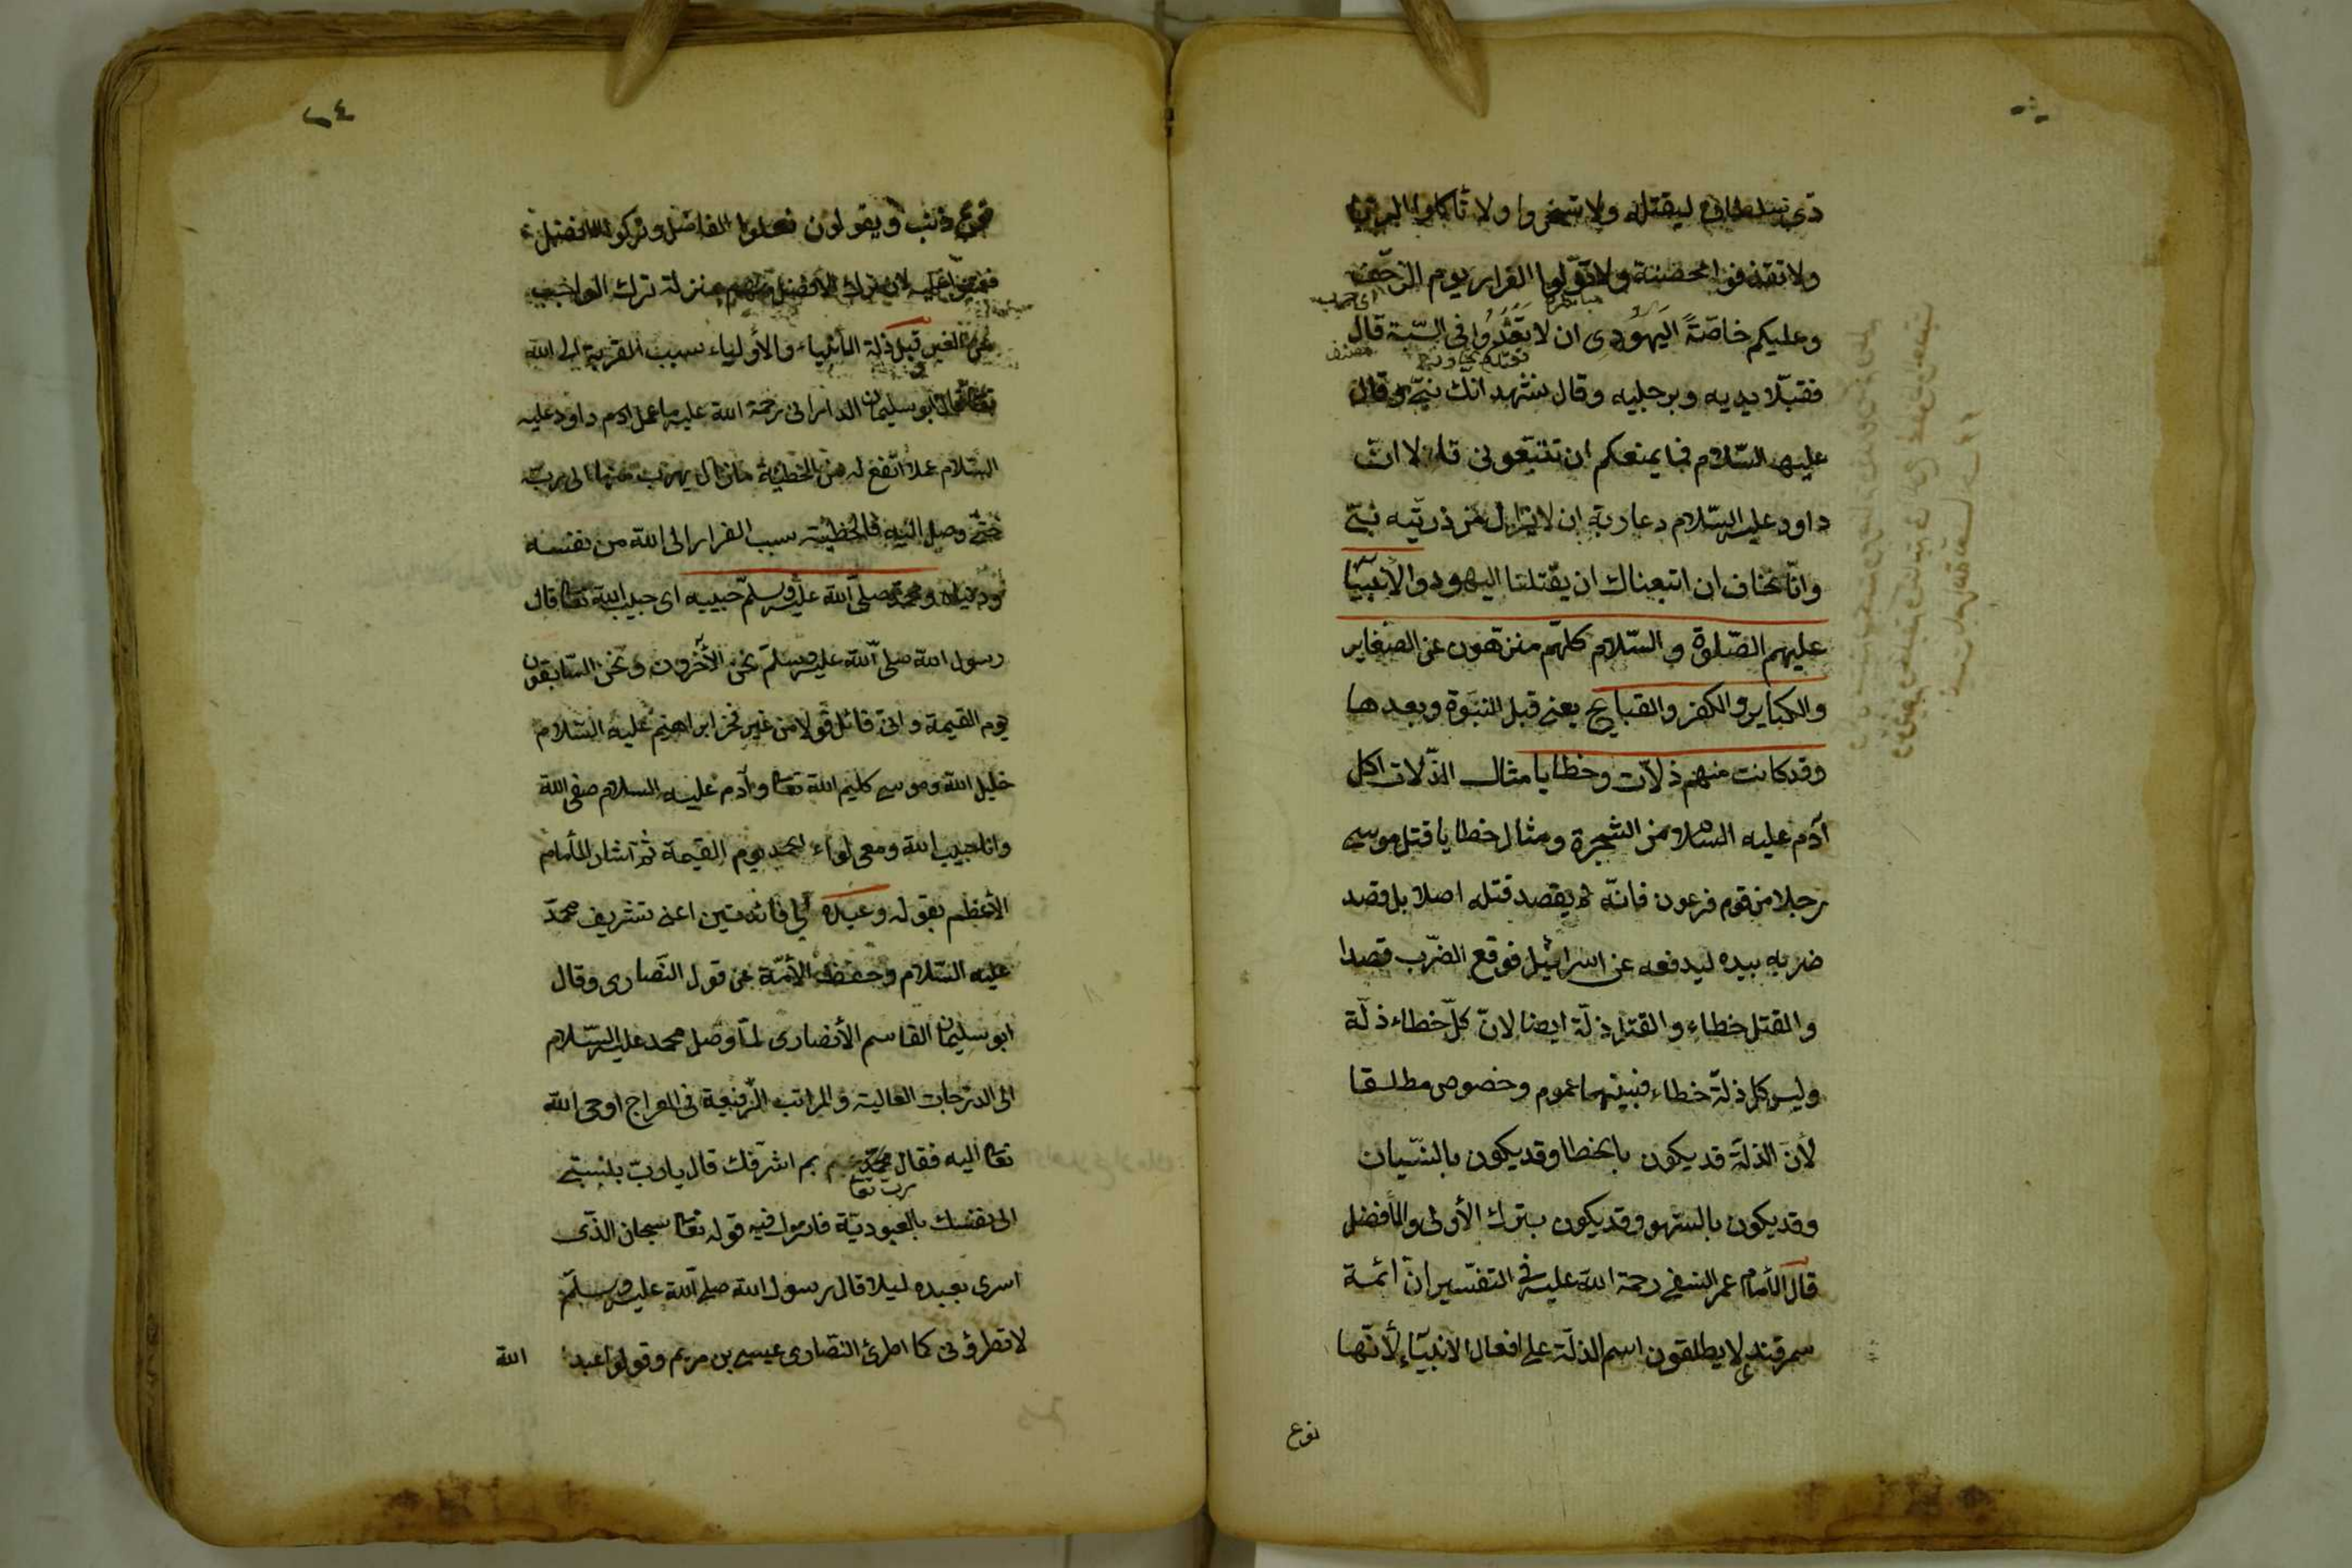 ذى سلطان ليقتله ولا تسخروا ولا تأكلوا الربوا
ولا تقذفوا محصنة ولا تولوا الفرار يوم الزحف
وعليكم خاصّةً اليهودى ان لا تعدوا فى السّبة قال
فقبّلا يديه ورجليه وقال نشهد انك نبىّ وقال
عليه السّلام فما يمنعكم ان تتبعونى قال لا انّ
داود عليه السّلام دعا ربّه ان لا يزال من ذريّته نبىّ
وانّا نخاف ان اتبعناك ان يقتلنا اليهود والأنبياء
عليهم الصّلوة والسّلام كلّهم منزّهون عن الصّغاير
والكباير والكفر والقبايح يعنى قبل النبوّة وبعدها
وقد كانت منهم ذلاّت وخطايا مثال الذّلات اكل
آدم عليه السلام من الشجرة ومثال خطايا قتل موسى
رجلا من قوم فرعون فانّه لم يقصد قتله اصلا بل قصد
ضربه بيده ليدفعه عن اسرائيل فوقع الضّرب قصدا
والقتل خطاء والقتل ذلّة ايضا لانّ كلّ خطاء ذلّة
وليس كل ذلّة خطاء فبينهما عموم وخصوص مطلقا
لأنّ الذلّة قد يكون بالخطا وقد يكون بالنّسيان
وقد يكون بالسّهو وقد يكون بترك الأولى والأفضل
قال الأمام عمر النسفى رحمة الله عليه فى التفسير انّ ائمة
سمرقند لا يطلقون اسم الذلّة على افعال الانبياء لأنّها
نوع
٦٤
نوع ذنب ويقولون فعلوا الفاضل وتركوا الافضل
فعوتبوا عليه لان ترك الأفضل منهم بمنزلة ترك الواجب
عن الغير قيل ذلة الأنبياء والأولياء سبب القربة الى الله
تعا قال ابو سليمان الدارانى رحمة الله عليه ما عمل آدم داود عليه
السّلام عملا انفع له من الخطيئة ما زال يهرب منها الى ربّه
حتّى وصل اليه فالخطيئة سبب الفرار الى الله من نفسه
ودنياه ومحمّد صلّى الله عليه وسلّم حبيبه اى حبيب الله تعا قال
رسول الله صلى الله عليه وسلّم نحن الآخرون ونحن السّابقون
يوم القيمة وانى قائل قولا من غير فخر ابراهيم عليه السّلام
خليل الله وموسى كليم الله تعا وآدم عليه السلام صفى الله
وانا حبيب الله ومعى لواء الحمد يوم القيمة ثم اشار الأمام
الأعظم بقوله وعبده الى فائدتين اعنى تشريف محمّد
عليه السّلام وحفظ الأمّة عن قول النّصارى وقال
ابو سليمان القاسم الأنصارى لمّا وصل محمد عليه السّلام
الى الدّرجات العالية والمراتب الرّفيعة فى المعراج اوحى الله
تعا اليه فقال محمّد بم اشرّفك قال يا ربّ بنسبتى
الى نفسك بالعبوديّة فانزل فيه قوله تعا سبحان الذى
اسرى بعبده ليلا قال رسول الله صلى الله عليه وسلّم
لا تطرؤنى كما اطرئ النّصارى عيسى بن مريم وقولوا عبد
الله